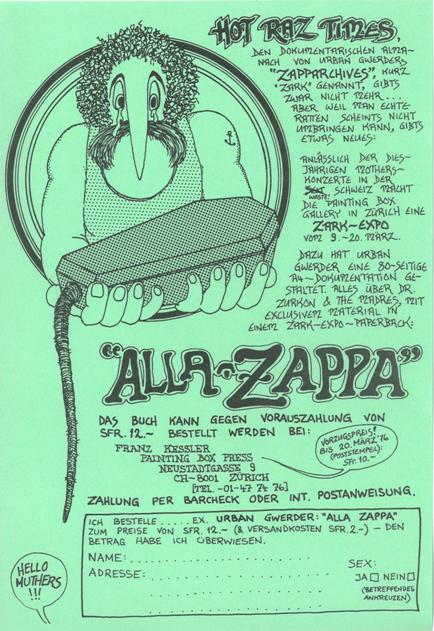 HOT RAZ TIMES,
DEN DOKUMENTARISCHEN ALMA-
NACH VON URBAN GWERDER,
"ZAPPARCHIVES", KURZ
"ZARK" GENANNT, GIBTS
ZWAR NICHT MEHR...
ABER WEIL MAN ECHTE
RATTEN SCHEINTS NICHT
UMBRINGEN KANN, GIBTS
ETWAS NEUES:
ANLÄSSLICH DER DIES-
JÄHRIGEN MOTHERS-
KONZERTE IN DER
SCHWEIZ MACHT
DIE PAINTING BOX
GALLERY IN ZÜRICH EINE
ZARK-EXPO
VOM 9.-20. MÄRZ.
DAZU HAT URBAN
GWERDER EINE 80-SEITIGE
A4-DOKUMENTATION GE-
STALTET. ALLES ÜBER DR.
ZURKON & THE MADRES, MIT
EXCLUSIVEM MATERIAL IN
EINEM ZARK-EXPO-PAPERBACK:
"ALLA ZAPPA"
DAS BUCH KANN GEGEN VORAUSZAHLUNG VON
SFR. 12.- BESTELLT WERDEN BEI:
FRANZ KESSLER
PAINTING BOX PRESS
NEUSTADTGASSE 9
CH-8001 ZÜRICH
[TEL. -01-47 74 76]
VORZUGSPREIS!
BIS 20. MÄRZ '76
(POSTSTEMPEL):
SFR. 10.-
ZAHLUNG PER BARCHECK ODER INT. POSTANWEISUNG.
ICH BESTELLE ..... EX. URBAN GWERDER: "ALLA ZAPPA"
ZUM PREISE VON SFR. 12.- (& VERSANDKOSTEN SFR. 2.-) - DEN
BETRAG HABE ICH ÜBERWIESEN.
NAME:
ADRESSE:
SEX:
JA NEIN
(BETREFFENDES
ANKREUZEN)
HELLO
MUTHERS
!!!